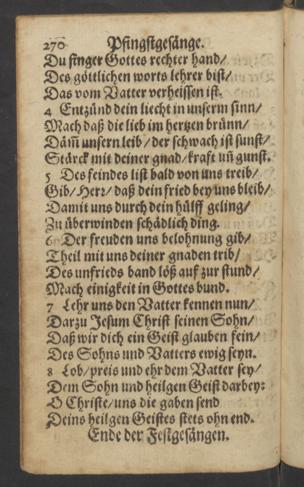 270 Pfingstgesänge.
Du finger Gottes rechter hand/
Des göttlichen worts lehrer bist/
Das vom Vatter verheissen ist.
4 Entzünd dein liecht in unserm sinn/
Mach daß die lieb im hertzen brünn/
Däm̃ unsern leib/ der schwach ist sunst/
Stärck mit deiner gnad/ kraft uñ gunst.
5 Des feindes list bald von uns treib/
Gib/ Herz/ daß dein fried bey uns bleib/
Damit uns durch dein hülff geling/
Zu überwinden schädlich ding.
6 Der freuden uns belohnung gib/
Theil mit uns deiner gnaden trib/
Des unfrieds band löß auf zur stund/
Mach einigkeit in Gottes bund.
7 Lehr uns den Vatter kennen nun/
Darzu Jesum Christ seinen Sohn/
Daß wir dich ein Geist glauben fein/
Des Sohns und Vatters ewig seyn.
8 Lob/ preis und ehr dem Vatter sey/
Dem Sohn und heilgen Geist darbey:
O Christe/ uns die gaben send
Deins heilgen Geistes stets ohn end.
Ende der Festgesängen.